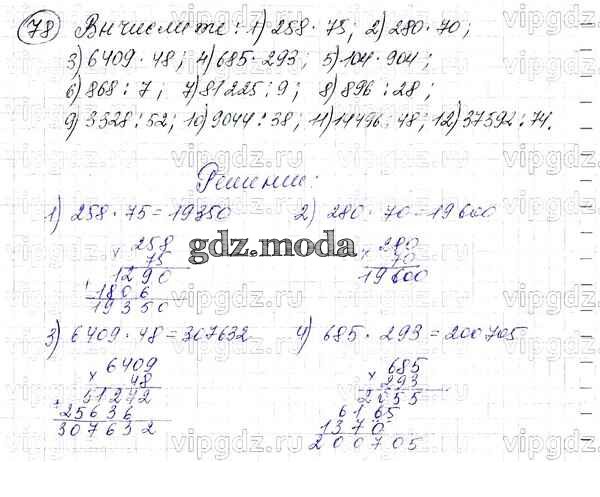 78 Вычислите: 1) 258 · 75; 2) 280 · 70;
3) 6409 · 48; 4) 685 · 293; 5) 104 · 904;
6) 868 : 7; 7) 81225 : 9; 8) 896 : 28;
9) 3328 : 52; 10) 9044 : 38; 11) 14496 : 48; 12) 37592 : 74.
vipgdz.ru vipgdz.ru vipgdz.ru
Решение:
1) 258 · 75 = 19350
2) 280 · 70 = 19600
gdz.moda
× 258
75
1290
+ 1806
19350
× 280
70
19600
3) 6409 · 48 = 307632
4) 685 · 293 = 200705
× 6409
48
51272
+ 25636
307632
× 685
293
2055
6165
1370
200705